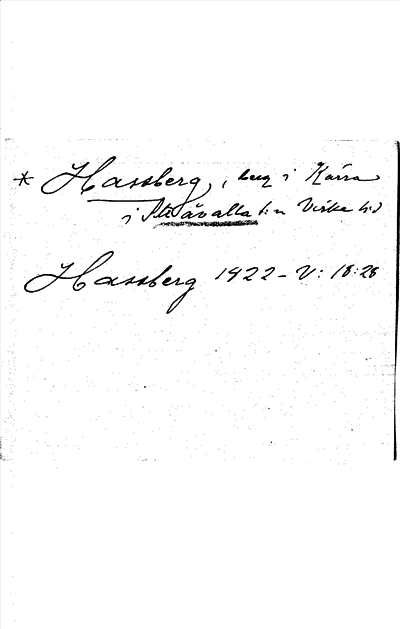 * Hassberg, berg i Kärra
i Slävalla s:n Viske hd
Hassberg 1922 – V: 18:28